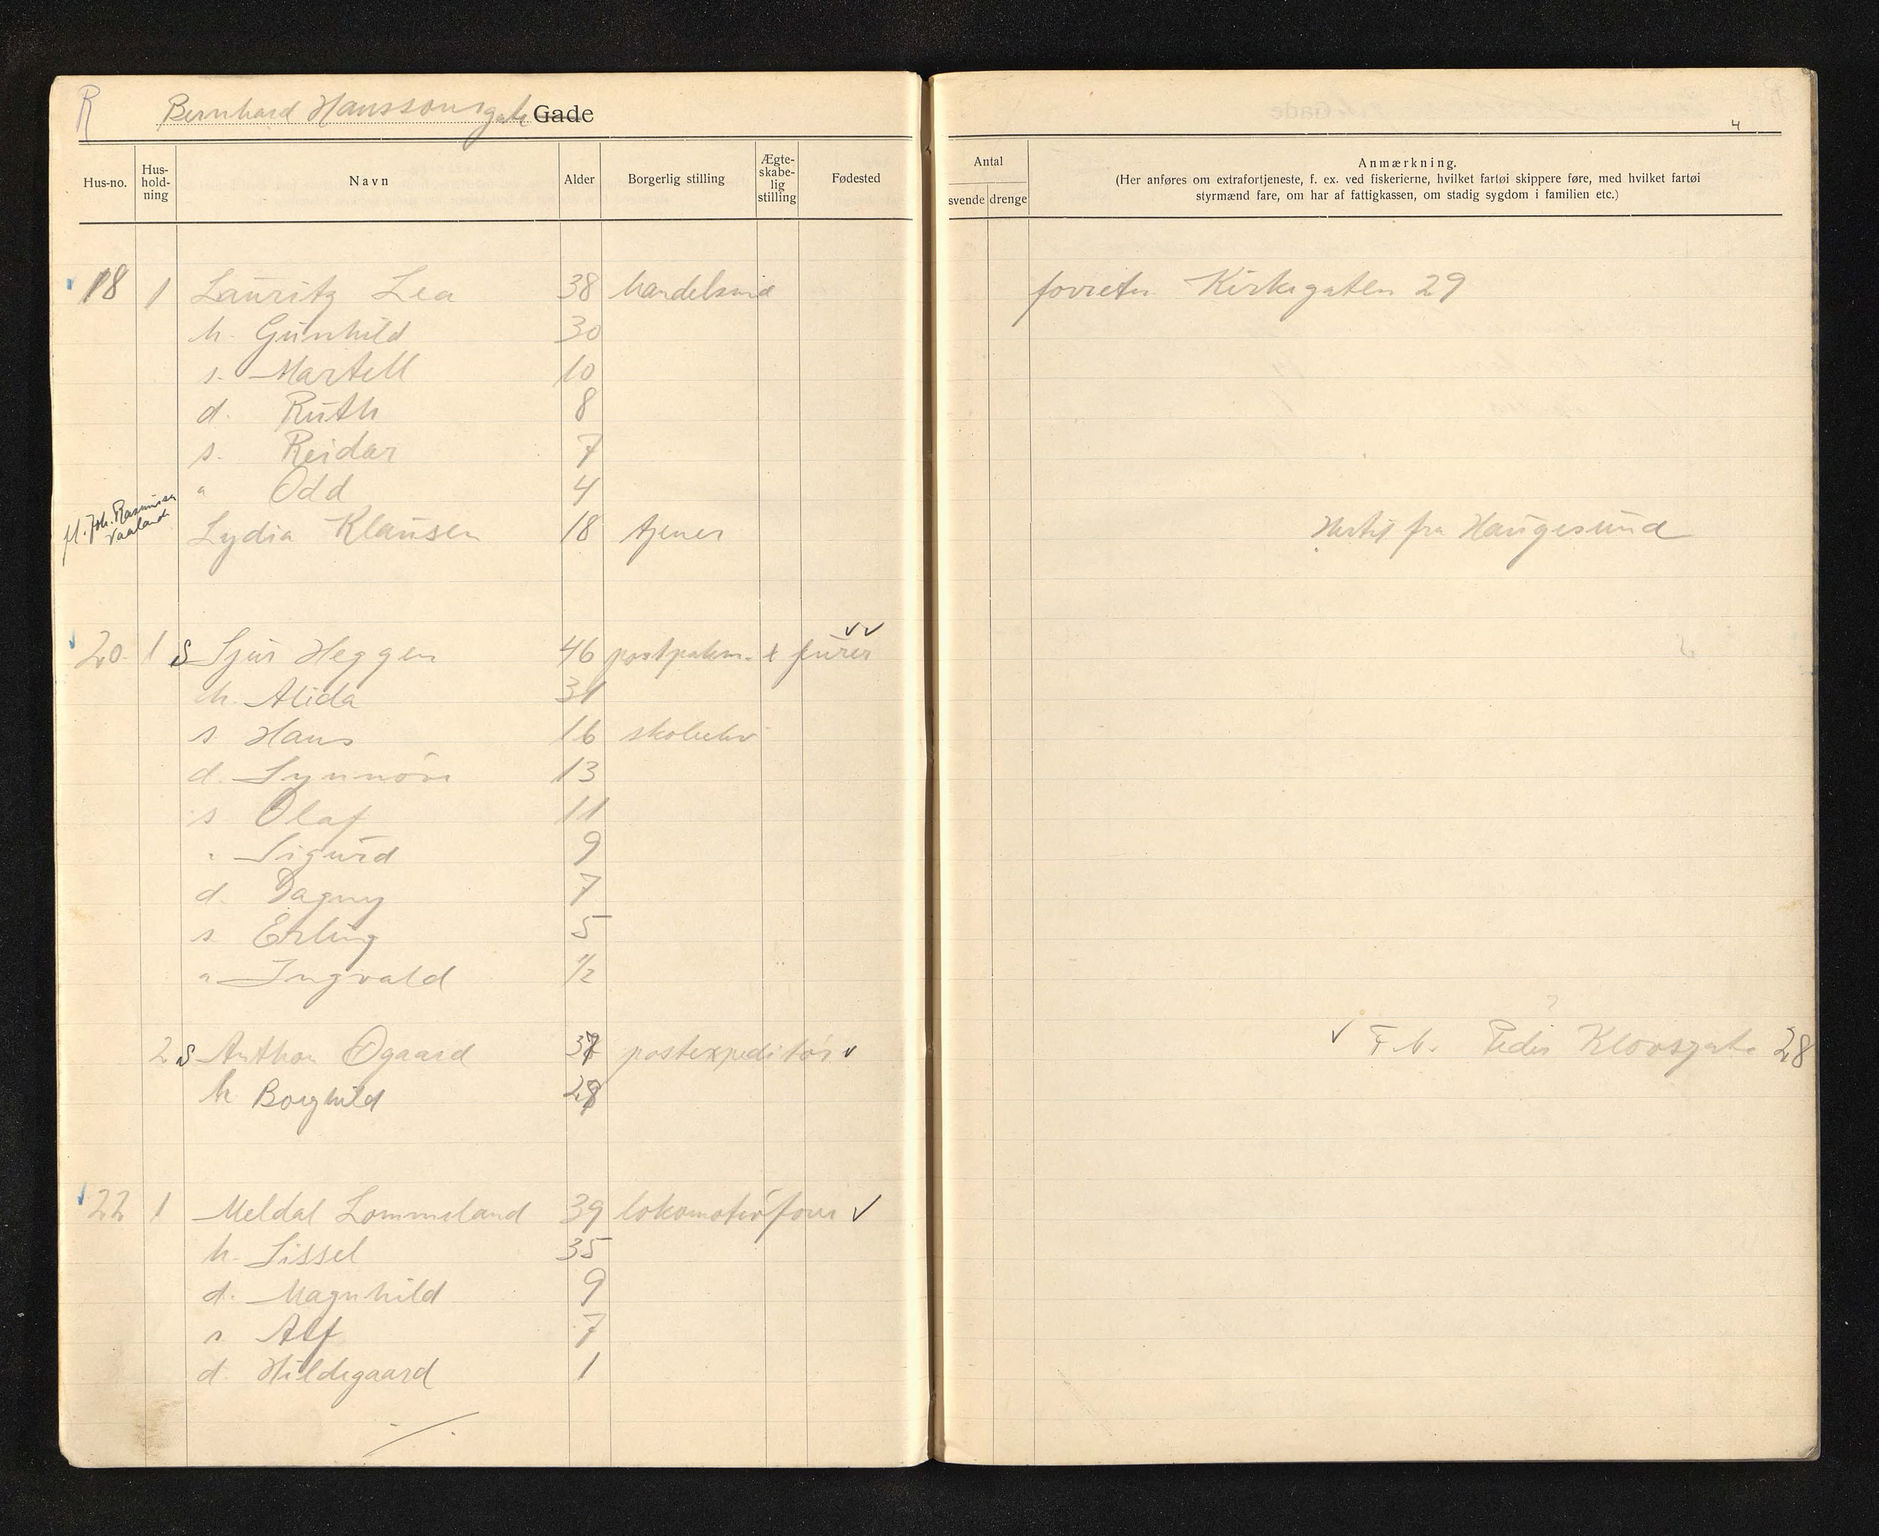 R Bernhard Hanssonsgate Gade
4
Hus-no. Hus-hold-ning Navn Alder Borgerlig stilling Ægte-skabe-lig stilling Fødested
Antal
svende drenge
Anmærkning.
(Her anføres om extrafortjeneste, f. ex. ved fiskerierne, hvilket fartøi skippere føre, med hvilket fartøi
styrmænd fare, om har af fattigkassen, om stadig sygdom i familien etc.)
18 1 Lauritz Lea 38 forretn Kirkegaten 29
h. Gunhild 30
s. Martell 10
d. Ruth 8
s. Reidar 7
" Odd 4
fl. Joh. Rasmussen
Vaaland
Lydia Klausen 18 tjener fra Haugesund
20 1 S Sjur Heggen 46
h. Alida 31
s. Hans 16 skoleelev
d. Synnöve 13
s Olaf 11
" Sigurd 9
d. Dagny 7
s. Erling 5
" Ingvald 1/2
2 S Anthon Øgaard 37 postexpeditör v v F. b. Peder Klovsgate 28
h Borghild 28
22 1 Meldal Lommeland 39 lokomotivförer v
h. Sissel 35
d. Magnhild 9
s Alf 7
d. Hildegaard 1